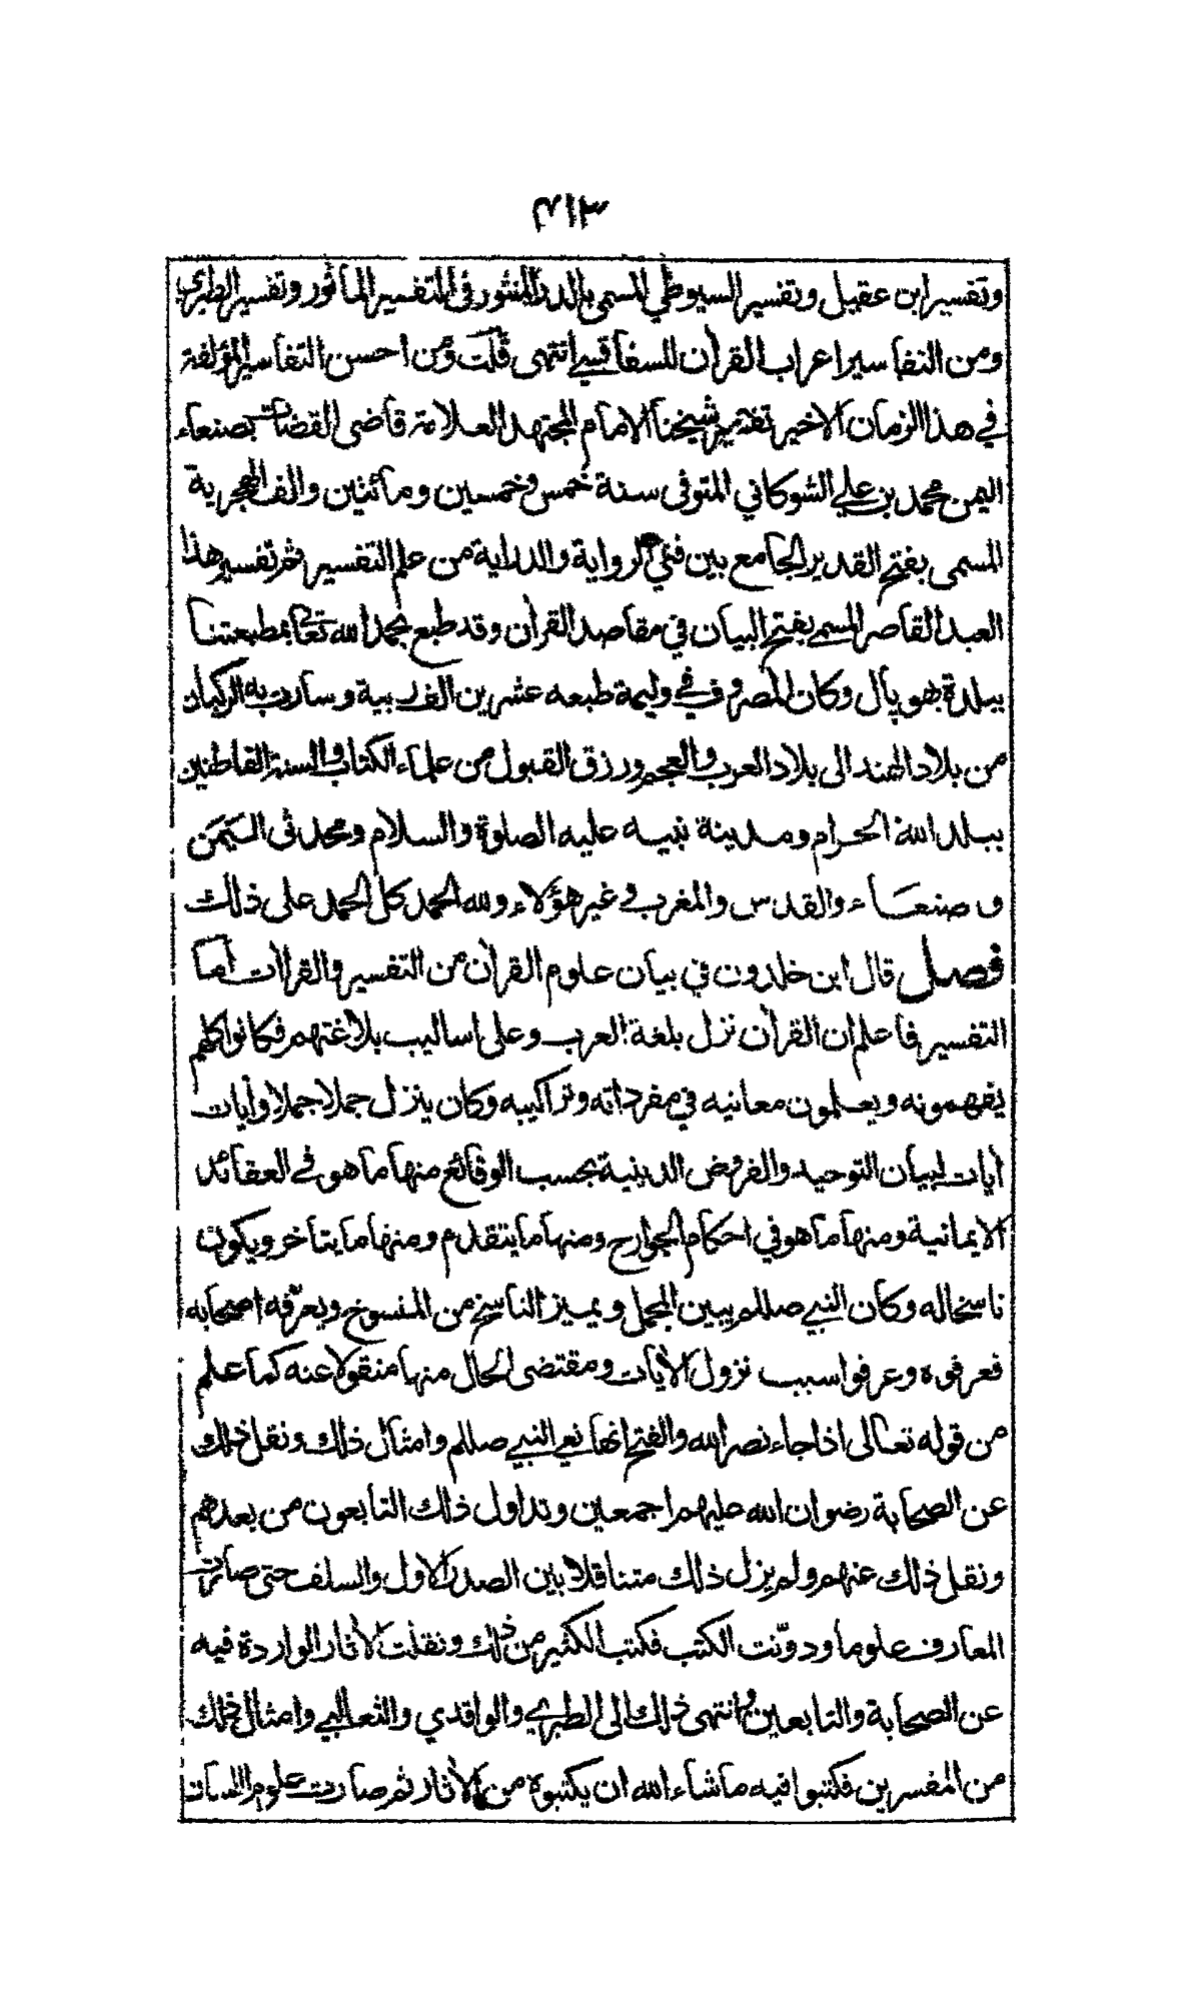 ٣١٣
وتفسير ابن عقيل وتفسير السيوطي المسمى بالدر المنثور فى التفسير المأثور وتفسير الطبرى
ومن التفاسير اعراب القرأن للسفاقسي انتهى قلت ومن احسن التفاسير المؤلفة
في هذا الزمان الاخير تفسير شيخنا الامام المجتهد العلامة قاضى القضات بصنعاء
اليمن محمد بن علي الشوكاني المتوفى سنة خمس وخمسين ومائتين والف الهجرية
المسمى بفتح القدير الجامع بين فني الرواية والدراية من علم التفسير ثم تفسير هذا
العبد القاصر المسمے بفتح البيان في مقاصد القرأن وقد طبع بحمد الله تعالى بمطبعتنا
ببلدة بهوپال وكان المصروف في وليمة طبعه عشرين الف ربية وسارت به الركبان
من بلاد الهند الى بلاد العرب والعجم ورزق القبول من علماء الكتاب والسنة القاطنين
ببلد الله الحرام ومدينة نبيه عليه الصلوة والسلام ومحدثى اليمن
و صنعاء والقدس والمغرب و غير هؤلاء ولله الحمد كل الحمد على ذلك
فصل قال ابن خلدون في بيان علوم القرأن من التفسير والقراأت أما
التفسير فاعلم ان القرأن نزل بلغة العرب وعلى اساليب بلاغتهم فكانوا كلهم
يفهمونه ويعلمون معانيه في مفرداته وتراكيبه وكان ينزل جملا جملا وأيات
أيات لبيان التوحيد والفروض الدينية بحسب الوقائع منها ما هو في العقائد
الايمانية ومنها ما هو في احكام الجوارح ومنها ما يتقدم ومنها ما يتأخر ويكون
ناسخا له وكان النبي صللم يبين المجمل ويميز الناسخ من المنسوخ ويعرّفه اصحابه
فعرفوه وعرفوا سبب نزول الأيات ومقتضى الحال منها منقولا عنه كما علم
من قوله تعالى اذا جاء نصر الله والفتح انها نعي النبي صللم وامثال ذلك ونقل ذلك
عن الصحابة رضوان الله عليهم اجمعين وتداول ذلك التابعون من بعدهم
ونقل ذلك عنهم ولم يزل ذلك متناقلا بين الصدر الاول والسلف حتى صارت
المعارف علوما ودوّنت الكتب فكتب الكثير من ذلك ونقلت الأثار الواردة فيه
عن الصحابة والتابعين وانتهى ذلك الى الطبري والواقدي والثعالبي وامثال ذلك
من المفسرين فكتبوا فيه ما شاء الله ان يكتبوه من الأثار ثم صارت علوم اللسان